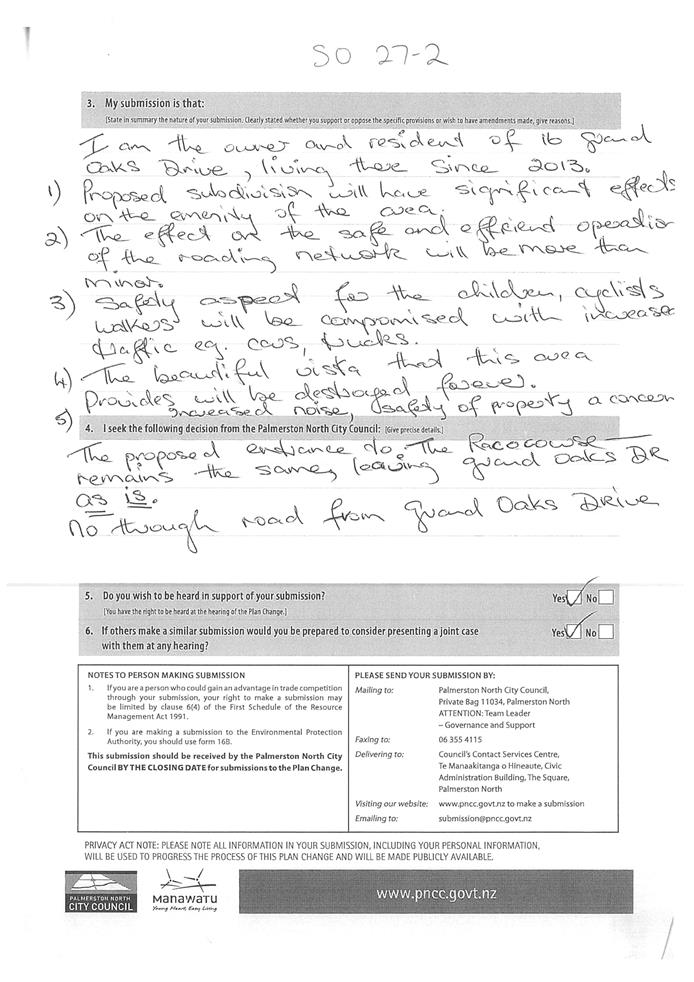 SO 27-2
3. My submission is that:
[State in summary the nature of your submission. Clearly stated whether you support or oppose the specific provisions or wish to have amendments made, give reasons.]
I am the owner and resident of 16 Grand
Oaks Drive, living there since 2013.
1) Proposed subdivision will have significant effects
on the amenity of the area.
2) The effect on the safe and efficient operation
of the roading network will be more than
minor.
3) Safety aspect for the children, cyclists
walkers will be compromised with increased
traffic eg. cars, trucks.
4) The beautiful vista that this area
Provides will be destroyed forever.
5) increased noise, safety of property a concern
4. I seek the following decision from the Palmerston North City Council: [Give precise details.]
The proposed entrance to The Racecourse
remains the same, leaving Grand Oaks DR
as is.
No through road from Grand Oaks Drive
5. Do you wish to be heard in support of your submission? Yes No
[You have the right to be heard at the hearing of the Plan Change.]
6. If others make a similar submission would you be prepared to consider presenting a joint case Yes No
with them at any hearing?
NOTES TO PERSON MAKING SUBMISSION
1. If you are a person who could gain an advantage in trade competition
through your submission, your right to make a submission may
be limited by clause 6(4) of the First Schedule of the Resource
Management Act 1991.
2. If you are making a submission to the Environmental Protection
Authority, you should use form 16B.
This submission should be received by the Palmerston North City
Council BY THE CLOSING DATE for submissions to the Plan Change.
PLEASE SEND YOUR SUBMISSION BY:
Mailing to: Palmerston North City Council,
Private Bag 11034, Palmerston North
ATTENTION: Team Leader
– Governance and Support
Faxing to: 06 355 4115
Delivering to: Council's Contact Services Centre,
Te Manaakitanga o Hineaute, Civic
Administration Building, The Square,
Palmerston North
Visiting our website: www.pncc.govt.nz to make a submission
Emailing to: submission@pncc.govt.nz
PRIVACY ACT NOTE: PLEASE NOTE ALL INFORMATION IN YOUR SUBMISSION, INCLUDING YOUR PERSONAL INFORMATION,
WILL BE USED TO PROGRESS THE PROCESS OF THIS PLAN CHANGE AND WILL BE MADE PUBLICLY AVAILABLE.
PALMERSTON NORTH
CITY COUNCIL
MANAWATU
Young Heart, Easy Living
www.pncc.govt.nz